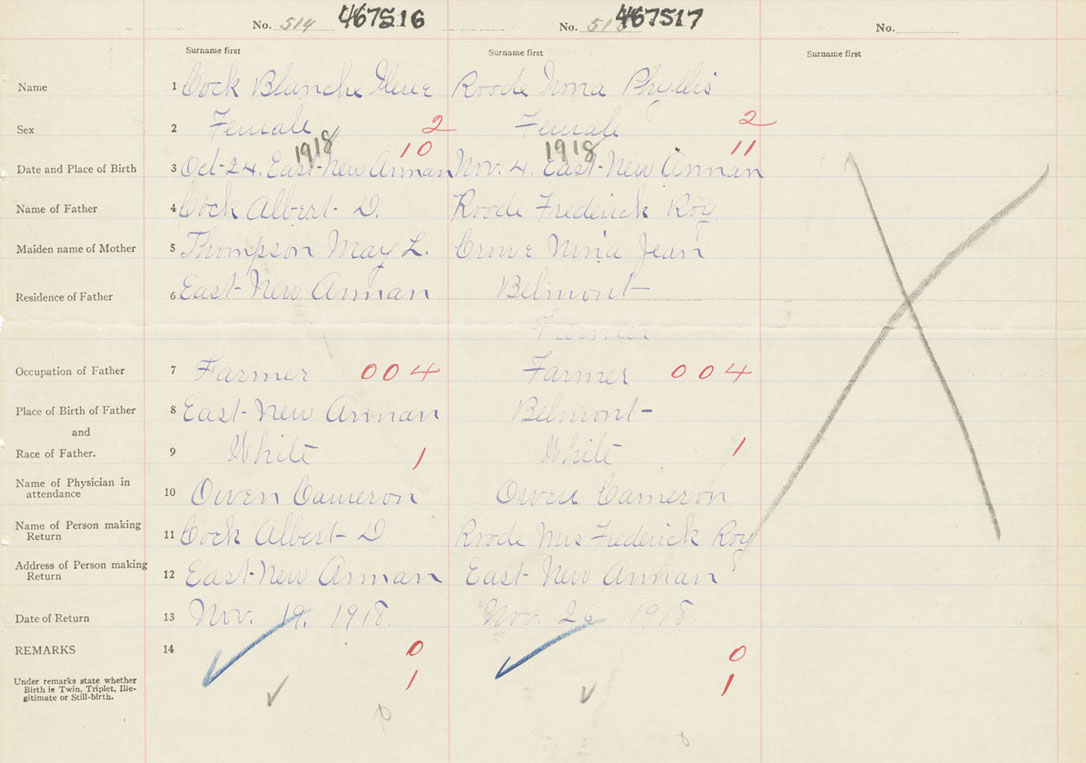 No. 514 467516 No. 515 467517 No.
Surname first Surname first Surname first
Name 1 Cock Blanche Ilene Roode Nona Phyllis
Sex 2 Female 2 Female 2
1918 10 1918 11
Date and Place of Birth 3 Oct-24. East-New Annan Nov. 4. East-New Annan
Name of Father 4 Cock Albert D. Roode Frederick Roy
Maiden name of Mother 5 Thompson May L. Crowe Nina Jean
Residence of Father 6 East-New Annan Belmont
Farmer
Occupation of Father 7 Farmer 004 Farmer 004
Place of Birth of Father 8 East-New Annan Belmont
and
Race of Father. 9 White 1 White 1
Name of Physician in attendance 10 Owen Cameron Owen Cameron
Name of Person making Return 11 Cock Albert D Roode Mrs Frederick Roy
Address of Person making Return 12 East-New Annan East-New Annan
Date of Return 13 Nov. 19. 1918. Nov. 26 1918.
REMARKS 14 0 0
Under remarks state whether Birth is Twin, Triplet, Ille-
gitimate or Still-birth. 1 1